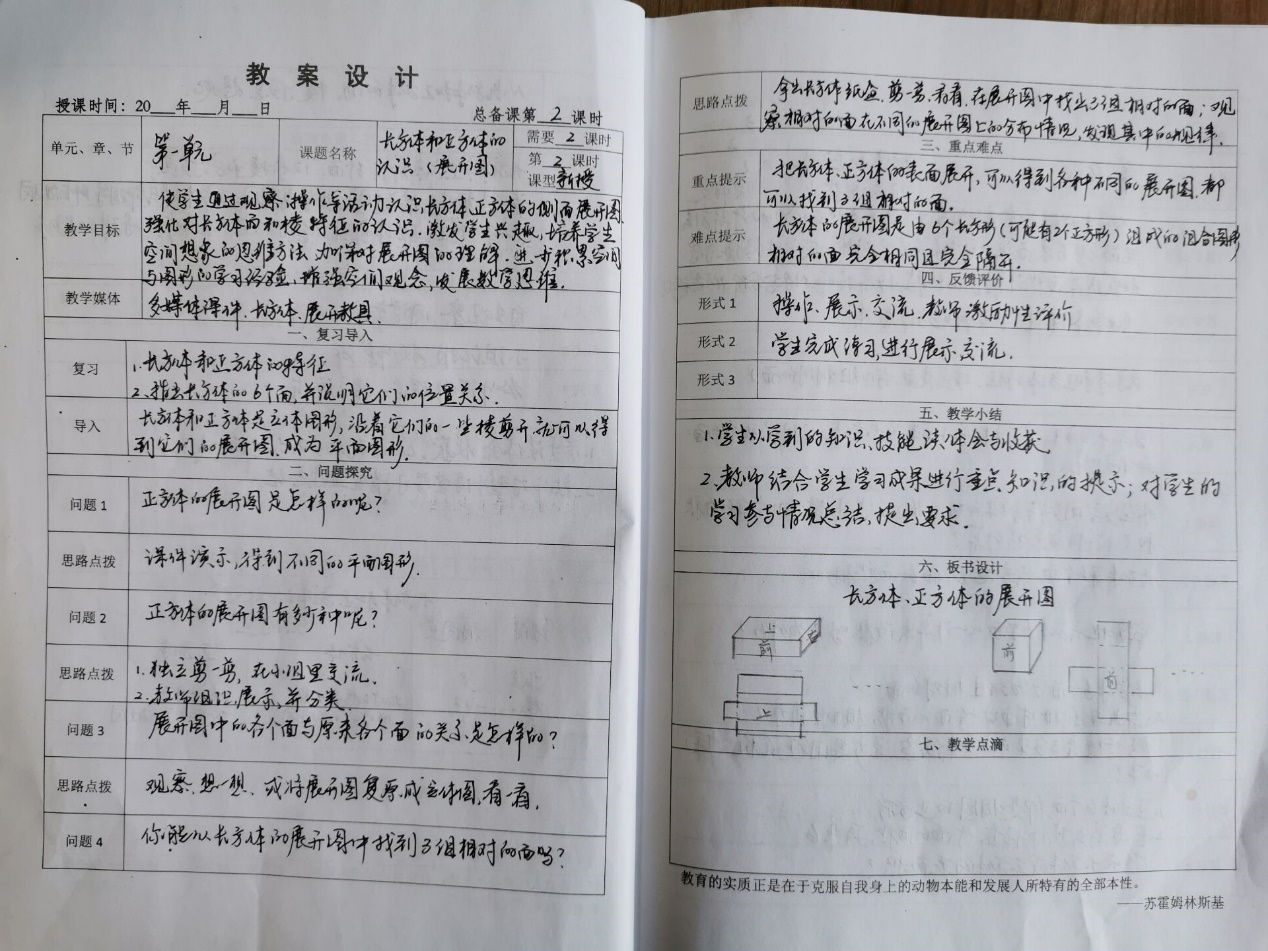 教案设计
授课时间：20 年 月 日
总备课第 2 课时
单元、章、节
第一单元
课题名称
长方体和正方体的
认识（展开图）
需要 2 课时
第 2 课时
课型 新授
教学目标
使学生通过观察、操作等活动认识长方体、正方体的侧面展开图
强化对长方体面和棱特征的认识。激发学生兴趣，培养学生
空间想象的思维方法，加深对展开图的理解。进一步积累空间
与图形的学习经验，增强空间观念，发展数学思维。
教学媒体
多媒体课件、长方体、展开教具
一、复习导入
复习
1.长方体和正方体的特征
2.指出长方体的6个面，并说明它们的位置关系．
导入
长方体和正方体是立体图形，沿着它们的一些棱剪开就可以得
到它们的展开图，成为平面图形．
二、问题探究
问题 1
正方体的展开图是怎样的呢？
思路点拨
课件演示，得到不同的平面图形．
问题 2
正方体的展开图有多少种呢？
思路点拨
1.独立剪一剪，在小组里交流．
2.教师组织展示，并分类．
问题 3
展开图中的各个面与原来各个面的关系是怎样的？
思路点拨
观察、想一想、或将展开图复原成立体图，看一看．
问题 4
你能从长方体的展开图中找到3组相对的面吗？
思路点拨
拿出长方体纸盒，剪一剪，看看，在展开图中找出3组相对的面；观
察相对的面在不同的展开图上的分布情况，发现其中的规律．
三、重点难点
重点提示
把长方体、正方体的表面展开，可以得到各种不同的展开图．都
可以找到3组相对的面．
难点提示
长方体的展开图是由6个长方形（可能有2个正方形）组成的组合图形
相对的面完全相同且完全隔开．
四、反馈评价
形式 1
操作、展示、交流，教师激励性评价
形式 2
学生完成练习，进行展示、交流．
形式 3
五、教学小结
1.学生从学到的知识、技能谈体会与收获
2.教师结合学生学习成果进行重点知识的提示；对学生的
学习参与情况总结，提出要求．
六、板书设计
长方体、正方体的展开图
上
前
右
前
上
前
七、教学点滴
教育的实质正是在于克服自我身上的动物本能和发展人所特有的全部本性。
——苏霍姆林斯基